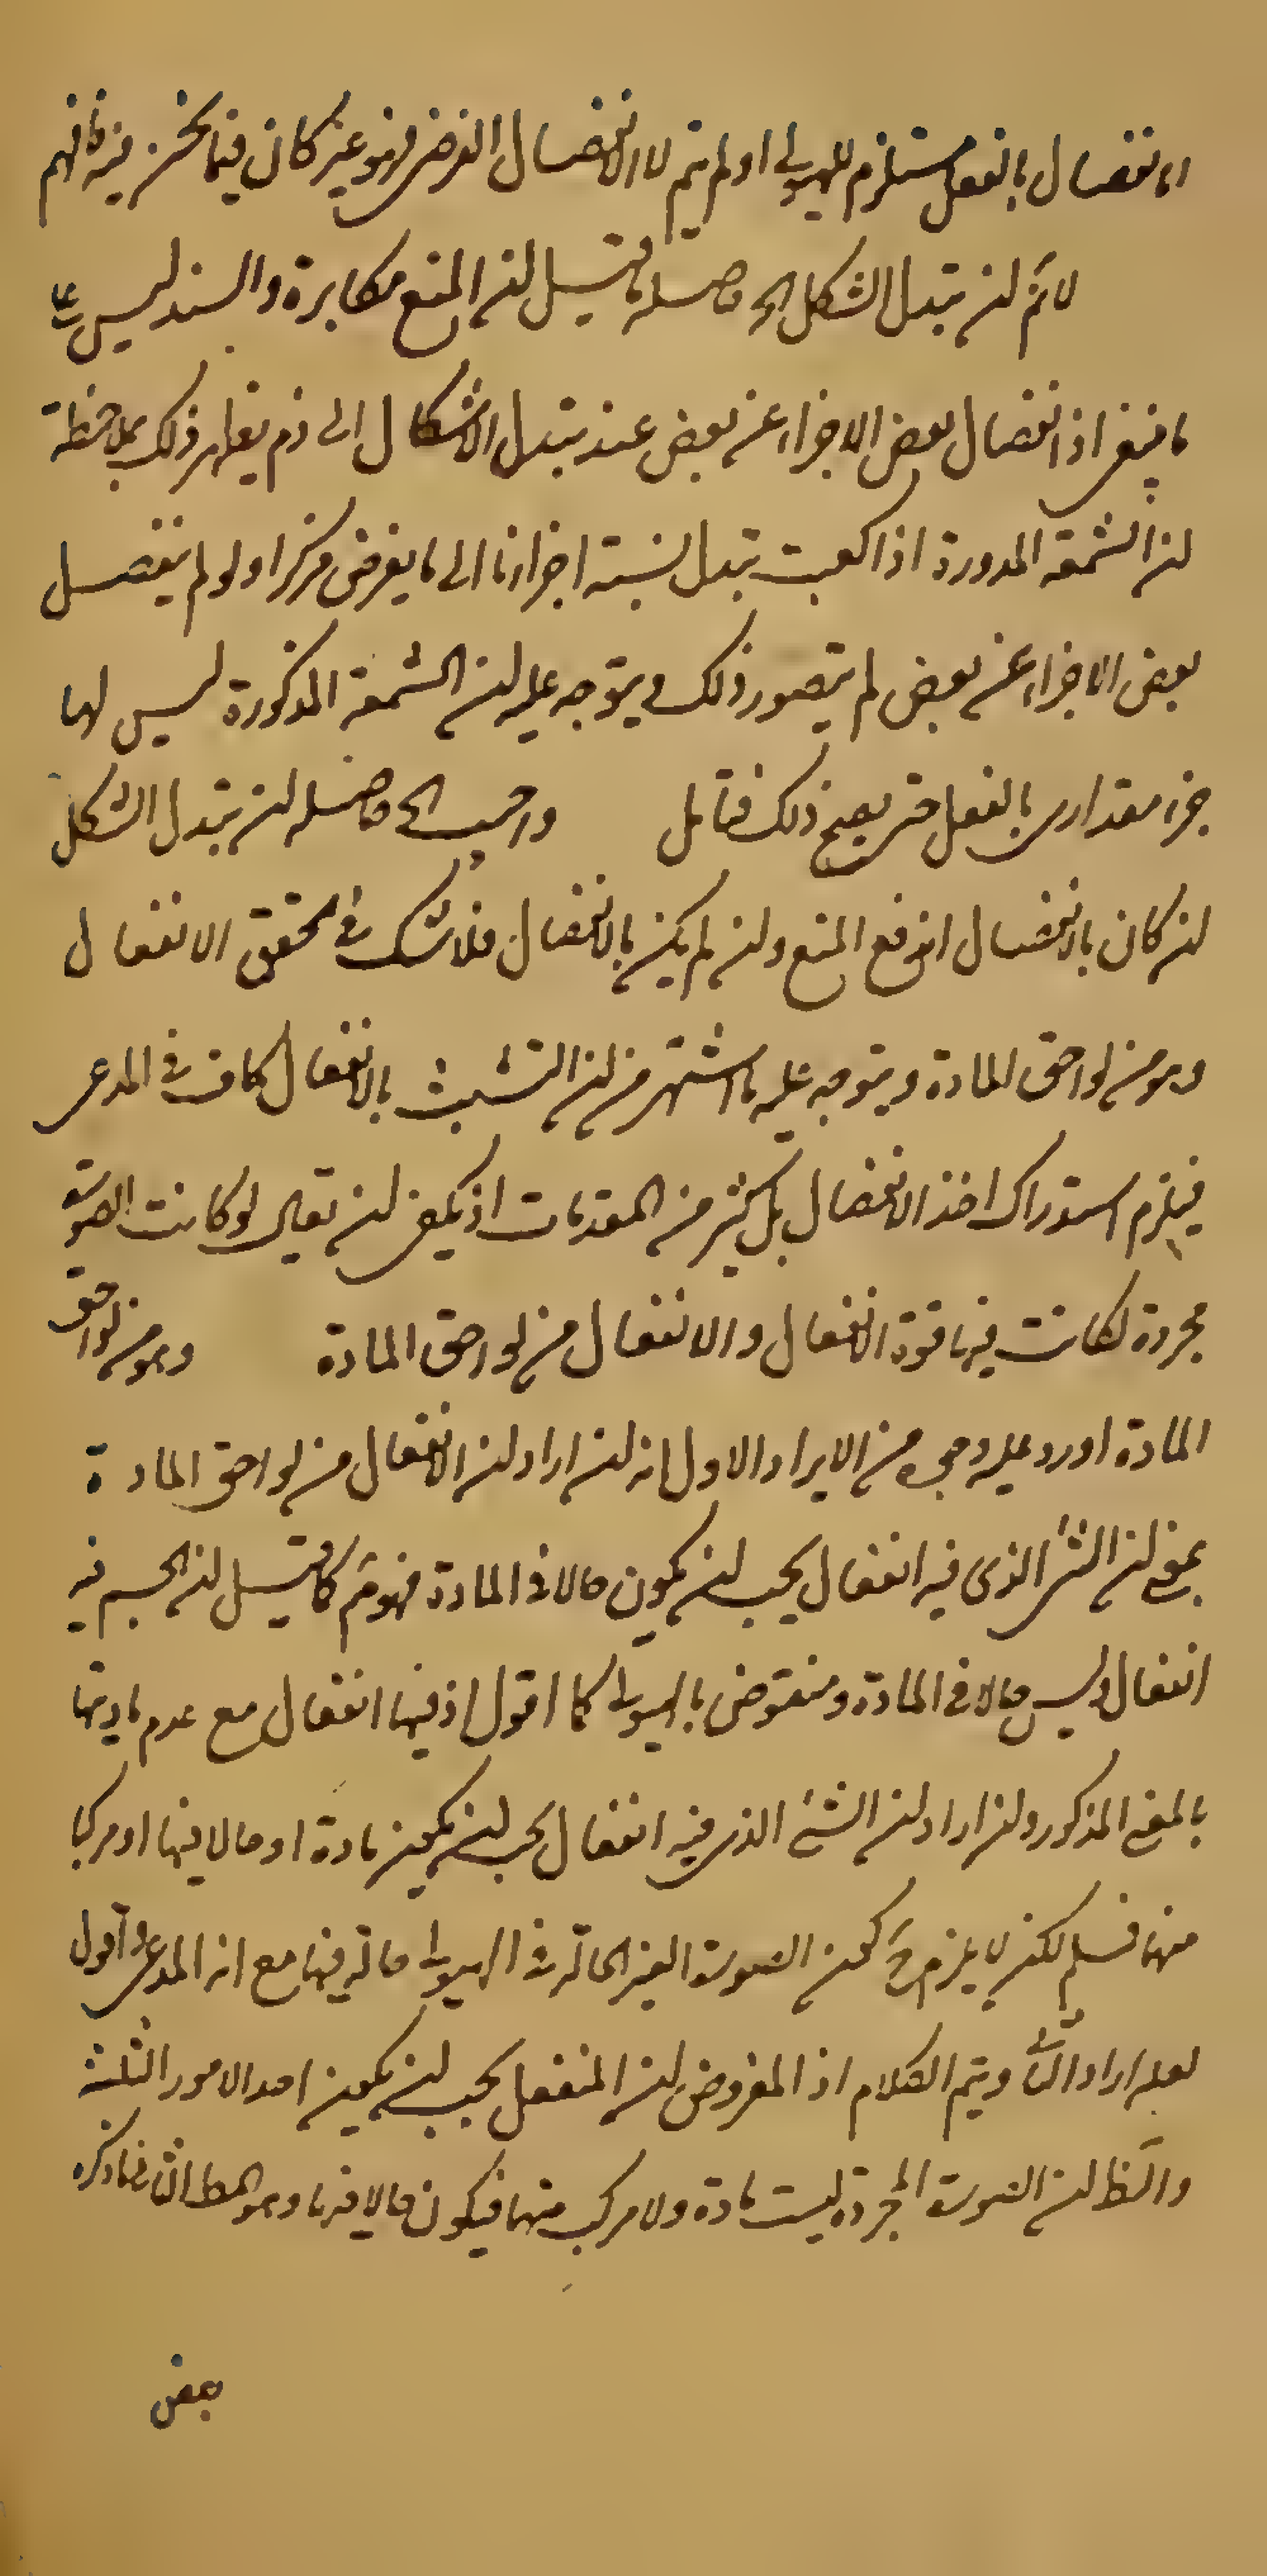 الانفصال بالفعل مستلزم للهيولى او لم يتم لا الانفصال الفرضى فهو غير كان فيما نحن فيه فافهم
لانم لن تبدل الشكل الخ حاصله ما قيل لن المنع مكابرة والسند ليس على
ما ينبغى اذ انفصال بعض الاجزاء عن بعض عند تبدل الاشكال الى ذم يظهر ذلك بملاحظة
لن الشمعة المدورة اذا كعبت تبدل نسبة اجزائها الى ما يفرض مركزا ولو لم ينفصل
بعض الاجزاء عن بعض لم يتصور ذلك ويتوجه عليه لن الشمعة المذكورة ليس لها
جزء مقدارى بالفعل حتى يصح ذلك فتامل واجيب الخ حاصله لن تبدل الشكل
لن كان بالانفصال اندفع المنع ولن لم يكن بالانفصال فلا شك فى تحقق الانفعال
وهو من لواحق المادة ويتوجه عليه ما اشتهر من لن التشبث بالانفعال كاف فى المدعى
فيلزم استدراك اخذ الانفصال بل كثير من المقدمات اذ يكفى لن يقال لو كانت الصورة
مجردة لكانت فيها قوة الانفعال والانفعال من لواحق المادة وهو من لواحق
المادة اورد عليه وجهين من الايراد الاول انه لن اراد لن الانفعال من لواحق المادة
بمعنى لن الشئ الذى فيه انفعال يجب لن يكون حالا فى المادة فهو مم كما قيل لن الجسم فيه
انفعال وليس حالا فى المادة ومنقوض بالهيولى كما اقول اذ فيها انفعال مع عدم ماديتها
بالمعنى المذكور ولن اراد لن الشئ الذى فيه انفعال يجب لن يكون مادة او حالا فيها او مركبا
منها فمسلم لكن لا يلزم ح كون الصورة الغير الحالة فى الهيولى حالة فيها مع انه المدعى واقول
لعله اراد الثانى ويتم الكلام اذ المفروض لن المنفعل يجب لن يكون احد الامور الثلثة
والظ لن الصورة المجردة ليست مادة ولا مركب منها فيكون حالا فيها وهو المط الثانى ما ذكره
بعض